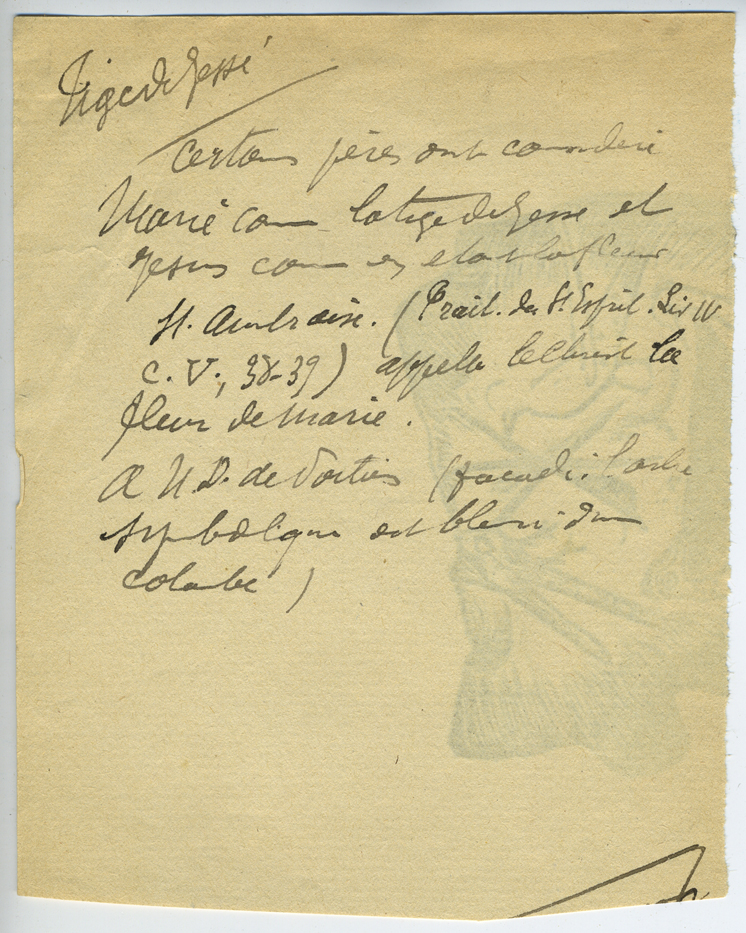 Tige de Jessé
Certains pères ont considéré
Marie comme la tige de Jesse et
Jesus comme en etant la fleur
St. Ambroise. (Trait. du St. Esprit. Liv IV
C. V., 38-39) appelle le Christ la
fleur de Marie.
A N.D. de Poitiers (facade: l'arbre
symbolique est
colombe)